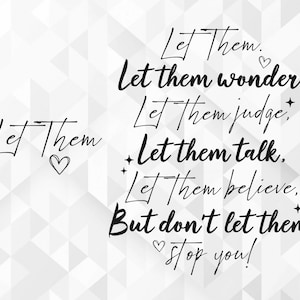 Let Them
Let Them.
Let them wonder
Let them judge,
Let them talk,
Let them believe,
But don't let them
stop you!